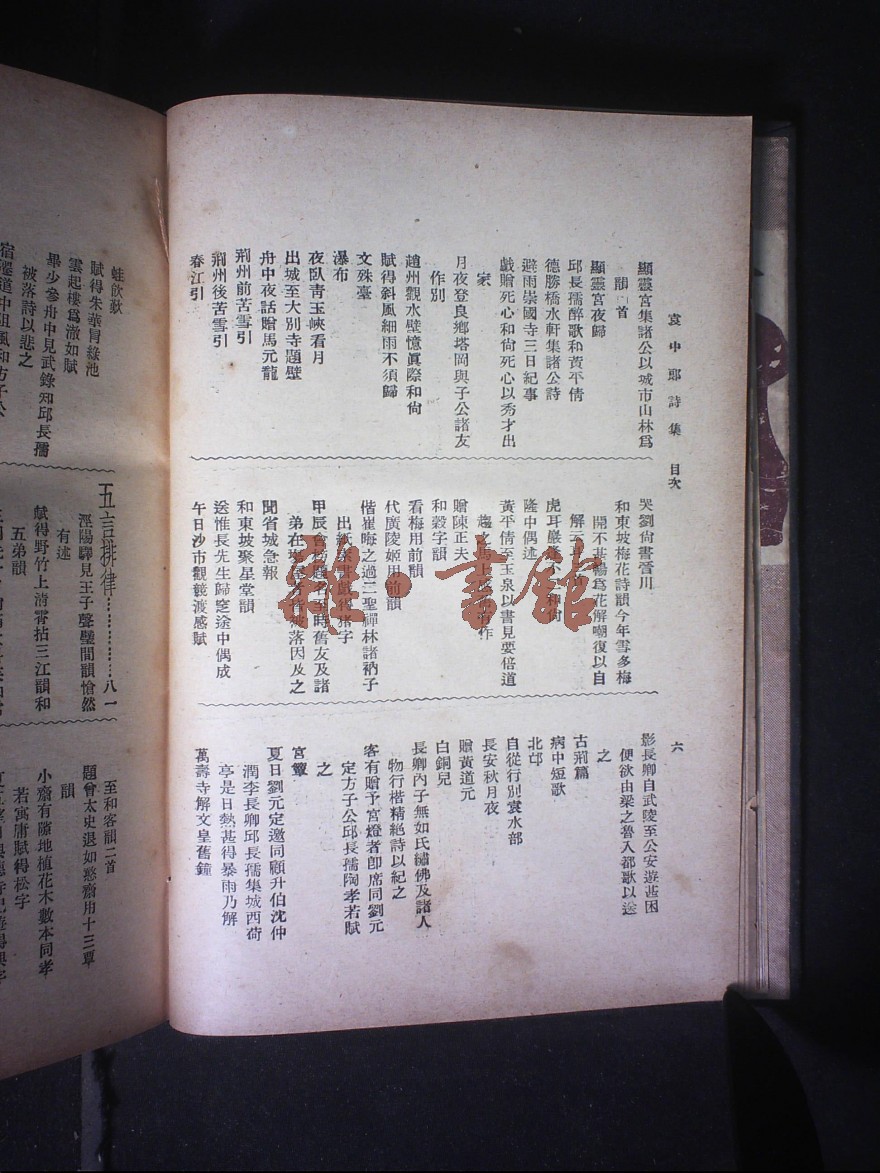 袁中郎詩集 目次
六
顯靈宮集諸公以城市山林為
韻 首
顯靈宮夜歸
邱長孺醉歌和黃平倩
德勝橋水軒集諸公詩
避雨崇國寺三日紀事
戲贈死心和尙死心以秀才出
家
月夜登良鄉塔岡與子公諸友
作別
趙州觀水壁憶眞際和尙
賦得斜風細雨不須歸
文殊臺
瀑布
夜臥青玉峽看月
出城至大別寺題壁
舟中夜話贈馬元龍
荊州前苦雪引
荊州後苦雪引
春江引
哭劉尙書晉川
和東坡梅花詩韻今年雪多梅
開不甚暢為花解嘲復以自
解
虎耳巖
隆中偶述
黃平倩至玉泉以書見要倍道
趨之馬上 作
贈陳正夫
和穀字韻
看梅用前韻
代廣陵姬用前韻
偕崔晦之過二聖禪林諸衲子
出紙 書戲得豬字
甲辰 至時舊友及諸
弟在 者 被落因及之
聞省城急報
和東坡聚星堂韻
送惟長先生歸窆途中偶成
午日沙市觀競渡感賦
影長卿自武陵至公安遊甚困
便欲由梁之魯入都歌以送
之
古荊篇
病中短歌
北邙
自從行別袁水部
長安秋月夜
贈黃道元
白銅兒
長卿內子無如氏繡佛及諸人
物行楷精絕詩以紀之
客有贈予宮燈者卽席同劉元
定方子公邱長孺陶孝若賦
之
宮簟
夏日劉元定邀同顧升伯沈仲
潤李長卿邱長孺集城西荷
亭是日熱甚得暴雨乃解
萬壽寺解文皇舊鐘
蛙飲歌
賦得朱華冒綠池
雲起樓為澈如賦
畢少參舟中見武錄知邱長孺
被落詩以悲之
宿 道中阻風和方子公
五言排律…………八一
涇陽驛見王子聲璧間韻愴然
有述
賦得野竹上清霄拈三江韻和
五弟韻
至和客韻二首
題曾太史退如慜齋用十三覃
韻
小齋有隙地植花木數本同孝
若寓庸賦得松字
雅·書館